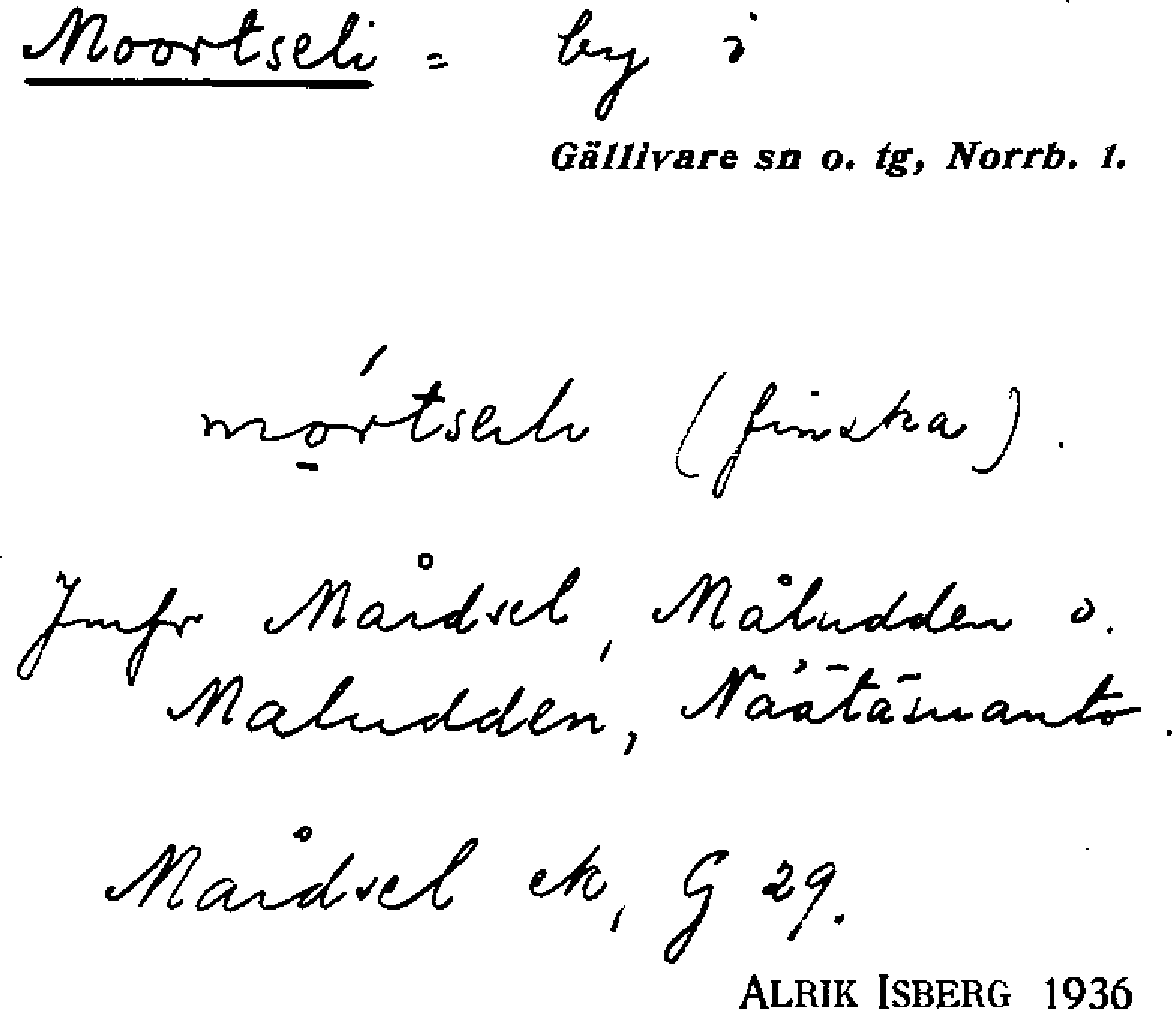 Moortseli = by i
Gällivare sn o. tg, Norrb. l.
mo̱rtseli (finska).
Jmfr Mårdsel, Måludden o.
Maludden, Näätäsuanto.
Mårdsel ek, G 29.
ALRIK ISBERG 1936